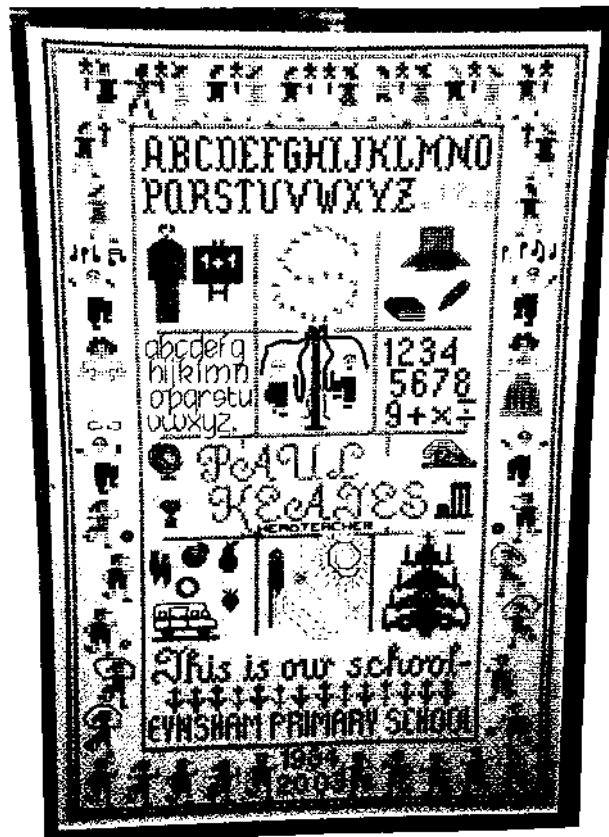 ABCDEFGHIJKLMNO
PQRSTUVWXYZ
1+1
abcdefg
hijklmn
opqrstu
vwxyz.
1234
5678
9+×÷
PAUL
KEATES
HEADTEACHER
This is our school-
EYNSHAM PRIMARY SCHOOL